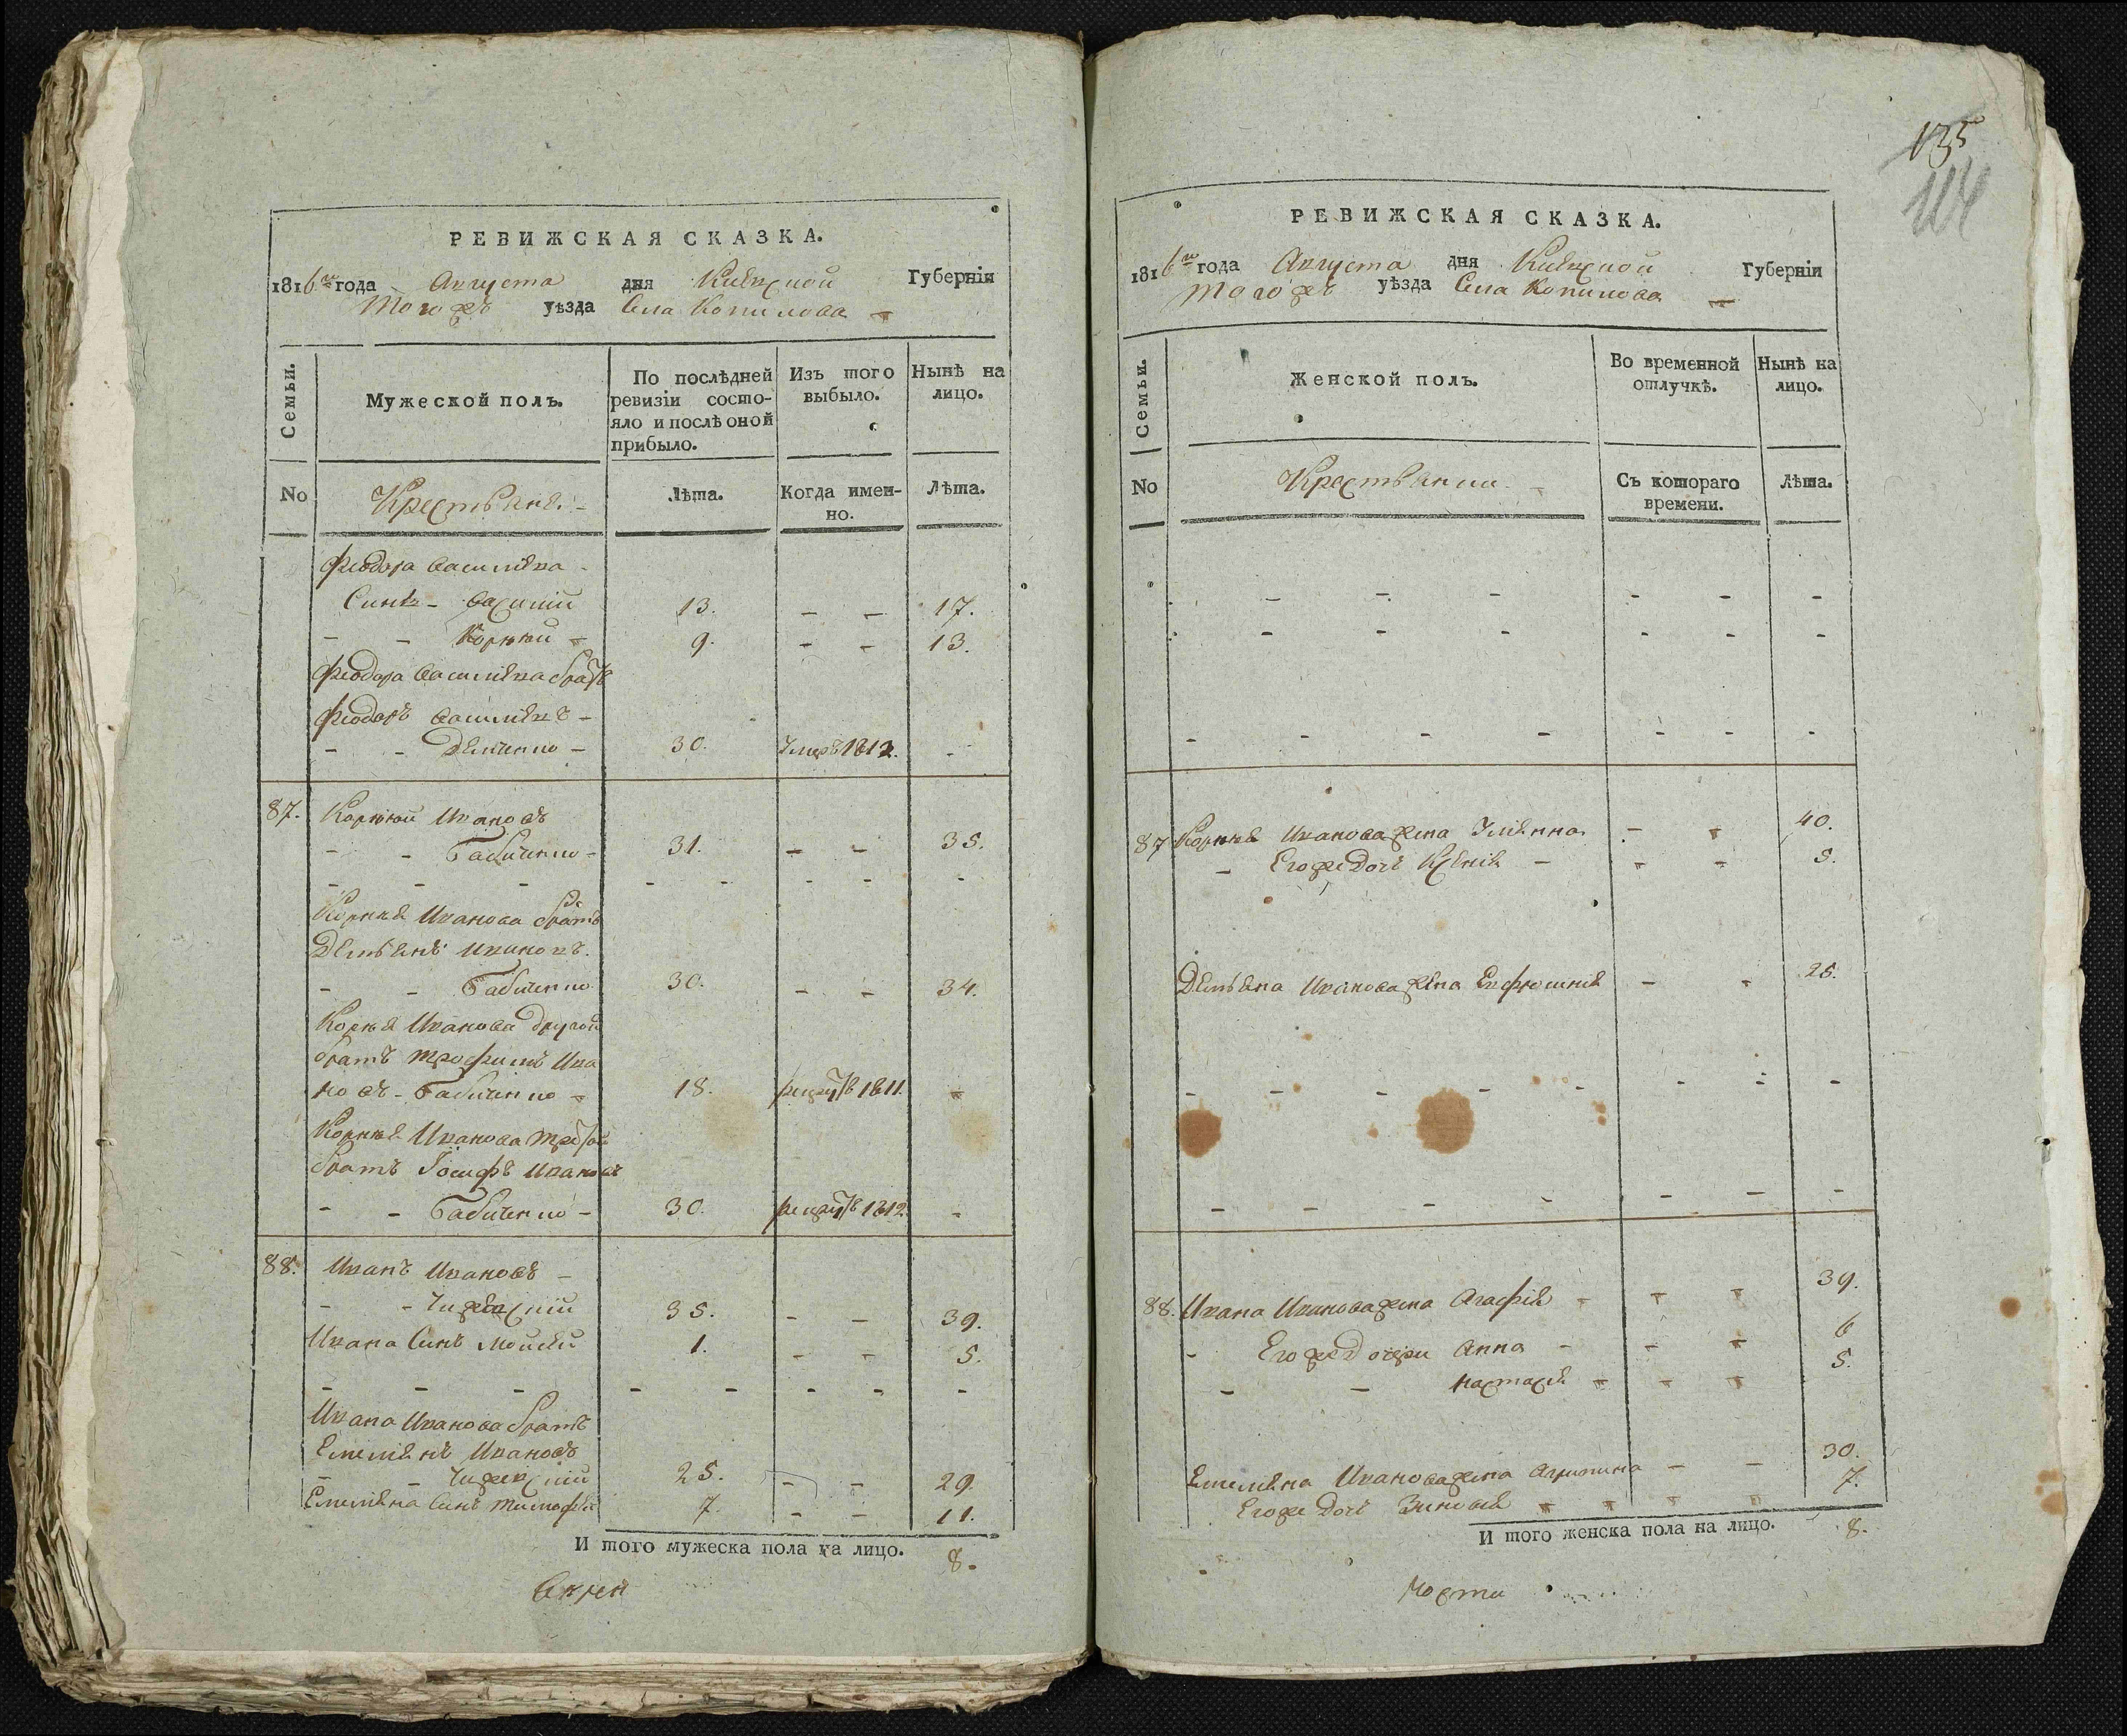 РЕВИЖСКАЯ СКАЗКА.
1816го года Августа дня Кіевской Губерніи
тогожъ уѣзда Села Копилова
Семьи.
Мужеской полъ.
По послѣдней ревизіи состо-
яло и послѣ оной
прибыло.
Изъ того
выбыло.
Нынѣ на
лицо.
No
Крестьяне.
Лѣта.
Когда имен-
но.
Лѣта.
Феодора Василіева
Синъ - Василій 13. - - 17.
- - Корнѣй - 9. - - 13.
Феодора Василіева братъ
Феодоръ Василіевъ -
- - Демченко - 30. Умеръ 1812. -
87. Корнѣй Ивановъ
- - Бабиченко - 31. - - 35.
- - - - - - - -
Корнѣя Иванова братъ
Демьянъ Ивановъ.
- - Бабиченко 30. - - 34.
Корнѣя Иванова другой
братъ Трофимъ Ива
новъ - Бабиченко - 18. рекрутъ 1811. -
Корнѣя Иванова третій
братъ Іосифъ Ивановъ
- - Бабиченко - 30. рекрутъ 1812. -
88. Иванъ Ивановъ -
- - 35. - - 39.
Ивана Синъ Мойсей 1. - - 5.
- - - - - - - -
Ивана Иванова братъ
Емеліянъ Ивановъ
- - 25. - - 29.
Емеліяна Синъ Тимофѣй 7. - - 11.
И того мужеска пола на лицо. 8.
135
114
РЕВИЖСКАЯ СКАЗКА.
1816го года Августа дня Кіевской Губерніи
тогожъ уѣзда Села Копилова
Семьи.
Женской полъ.
Во временной
отлучкѣ.
Нынѣ на
лицо.
No
Крестьянки
Съ котораго
времени.
Лѣта.
- - - - - -
- - - - - -
- - - - - - -
87 Корнѣя Иванова жена Уліянна - - 40.
- Егожъ Дочь Ксенія - - - 5.
Демьяна Иванова жена Евфросинія - - 25.
- - - - - - - -
- - - - - - -
88. Ивана Иванова жена Агафія - - - 39.
- Егожъ Дочери Анна - - - 6
- - Настасія - - - 5.
Емеліяна Иванова жена Агрипина - - 30.
Егожъ Дочь Зиновія - - - - 7.
И того женска пола на лицо. 8.